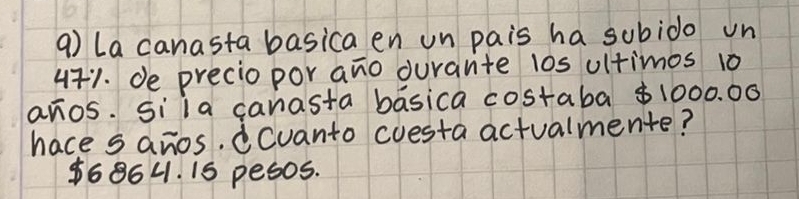 9) La canasta basica en un pais ha subido un
47%. de precio por año durante los ultimos 10
años. Si la canasta básica costaba $1000.00
hace 5 años. ¿Cuanto cuesta actualmente?
$6864.15 pesos.